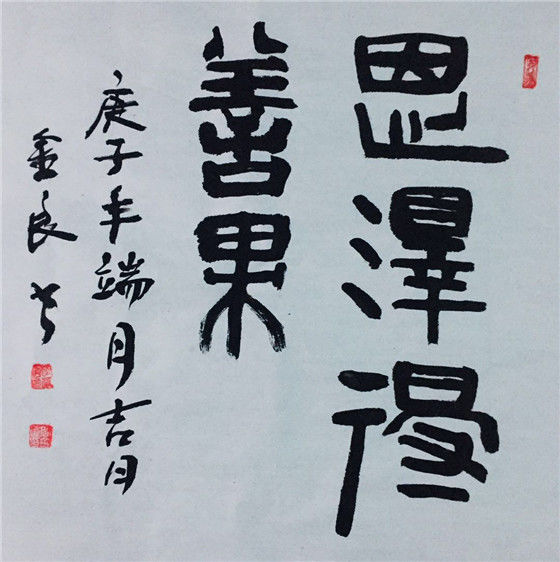 恩澤得
善果
庚子年端月吉日
金良书